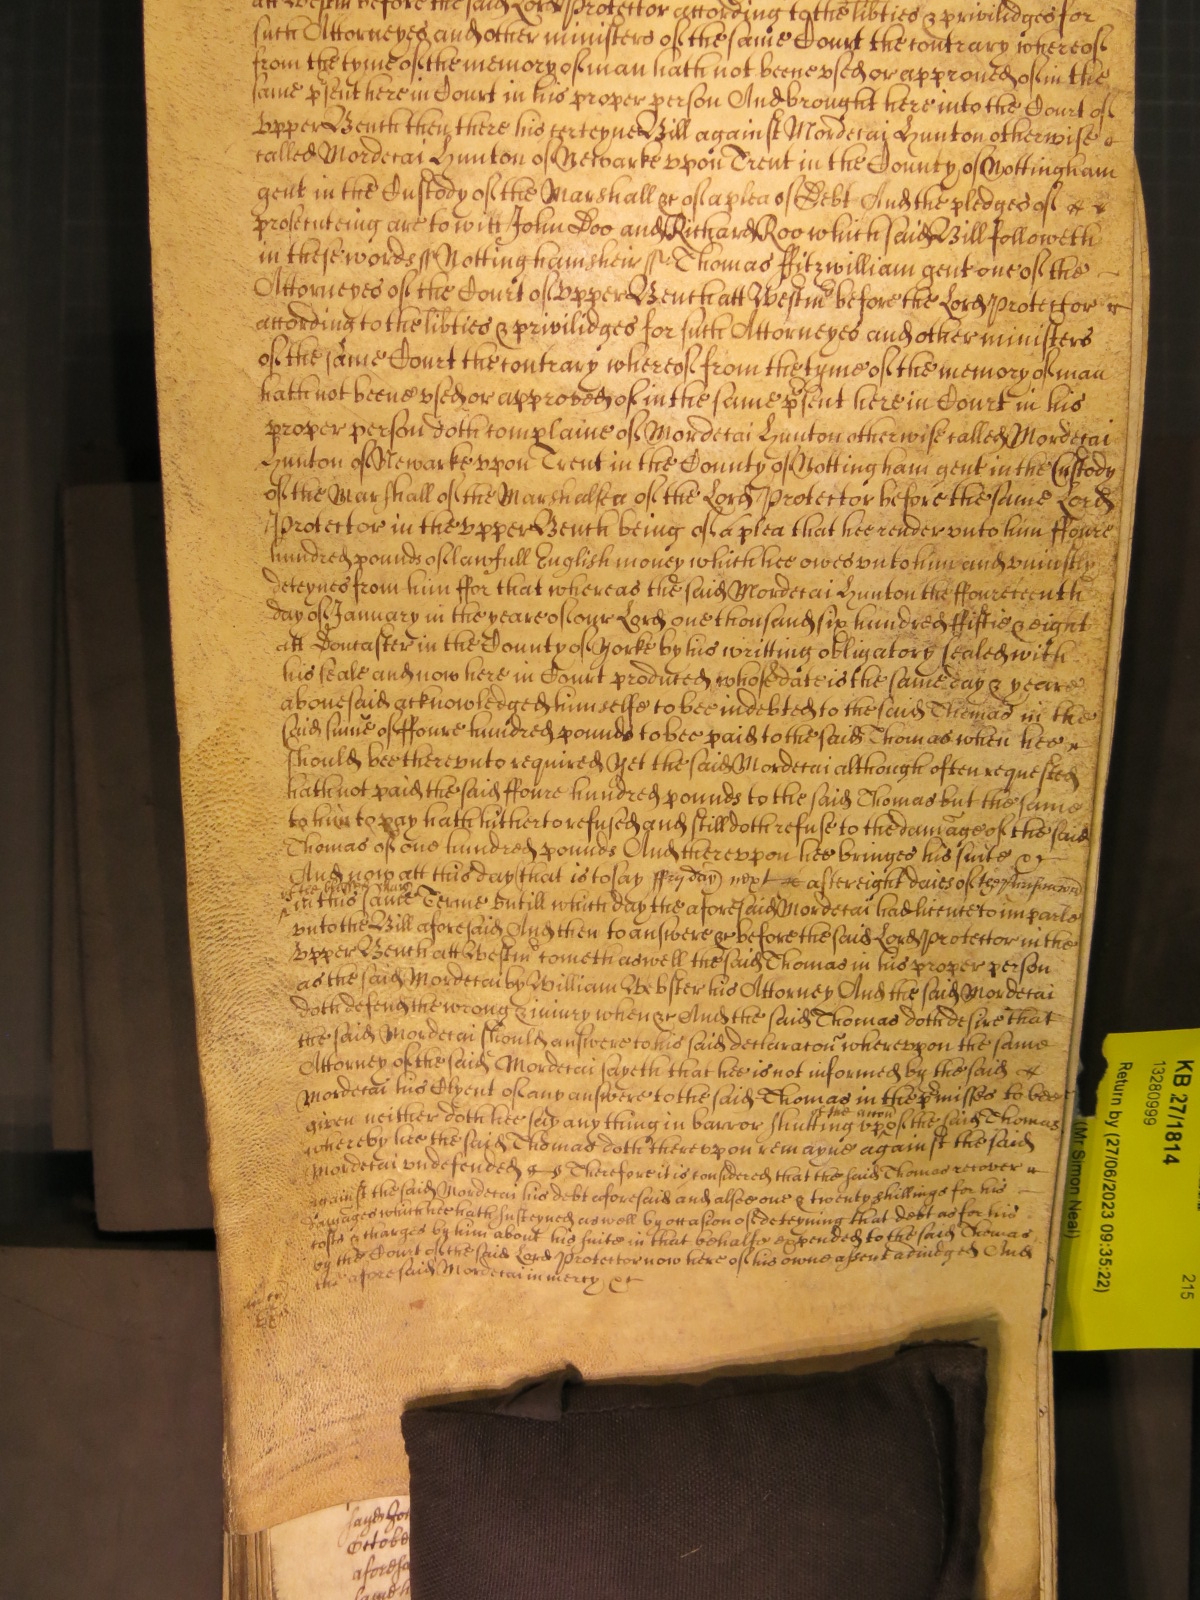 att Westm before the said Lord Protector according to the libties & privilidges for
such Attorneyes and other ministers of the same Court the contrary whereof
from the tyme of the memory of man hath not beene vsed or approued of in the
same psent here in Court in his proper person And brought here into the Court of
Vpper Bench then there his certeyne Bill against Mordecai Hunton otherwise
called Mordecai Hunton of Newarke vpon Trent in the County of Nottingham
gent in the Custody of the Marshall &c of a plea of Debt And the pledges of
prosecuteing are to witt John Doo and Richard Roo which said Bill followeth
in these words ss Nottinghamsheir ss Thomas ffitzwilliam gent one of the
Attorneyes of the Court of Vpper Bench att Westm before the Lord Protector
according to the libties & privilidges for such Attorneyes and other ministers
of the same Court the contrary whereof from the tyme of the memory of man
hath not beene vsed or approved of in the same psent here in Court in his
proper person doth complaine of Mordecai Hunton otherwise called Mordecai
Hunton of Newarke vpon Trent in the County of Nottingham gent in the Custody
of the Marshall of the Marshalsea of the Lord Protector before the same Lord
Protector in the Vpper Bench being of a plea that hee render vnto him ffoure
hundred pounds of lawfull English money which hee owes vnto him and vniustly
deteynes from him ffor that whereas the said Mordecai Hunton the ffoureteenth
day of January in the yeare of our Lord one thousand six hundred ffiftie & eight
att Doncaster in the County of Yorke by his writting obligatory sealed with
his seale and now here in Court produced whose date is the same day & yeare
abovesaid acknowledged himselfe to bee indebted to the said Thomas in the
said sume of ffoure hundred pounds to bee paid to the said Thomas when hee
should bee therevnto required Yet the said Mordecai although often requested
hath not paid the said ffoure hundred pounds to the said Thomas but the same
to him to pay hath hitherto refused and still doth refuse to the damage of the said
Thomas of one hundred pounds And therevpon hee bringes his suite &c
And now att this day that is to say ffryday next after eight daies of the
in this same Terme Untill which day the aforesaid Mordecai had licence to imparle
vnto the Bill aforesaid And then to answere &c before the said Lord Protector in the
Vpper Bench att Westm cometh aswell the said Thomas in his proper person
as the said Mordecai by William Webster his Attorney And the said Mordecai
doth defend the wrong & iniury when &c And the said Thomas doth desire that
the said Mordecai should answere to his said declaracon wherevpon the same
Attorney of the said Mordecai sayeth that hee is not informed by the said
Mordecai his Clyent of any answere to the said Thomas in the pmisses to bee
given neither doth hee say any thing in barr or shutting vp of the accon of the said Thomas
whereby hee the said Thomas doth therevpon remayne against the said
Mordecai vndefended &c Therefore it is considered that the said Thomas recover
against the said Mordecai his debt aforesaid and alsoe one & twenty shillings for his
damages which hee hath susteyned aswell by occasion of deteyning that debt as for his
costs & charges by him about his suite in that behalfe expended to the said Thomas
by the Court of the said Lord Protector now here of his owne assent adiudged And
the aforesaid Mordecai in mercy &c
sayd
Octobe
aforesa
same
KB 27/1814
13280999
Return by (27/06/2023 09:35:22)
(Mr Simon Neal)
215